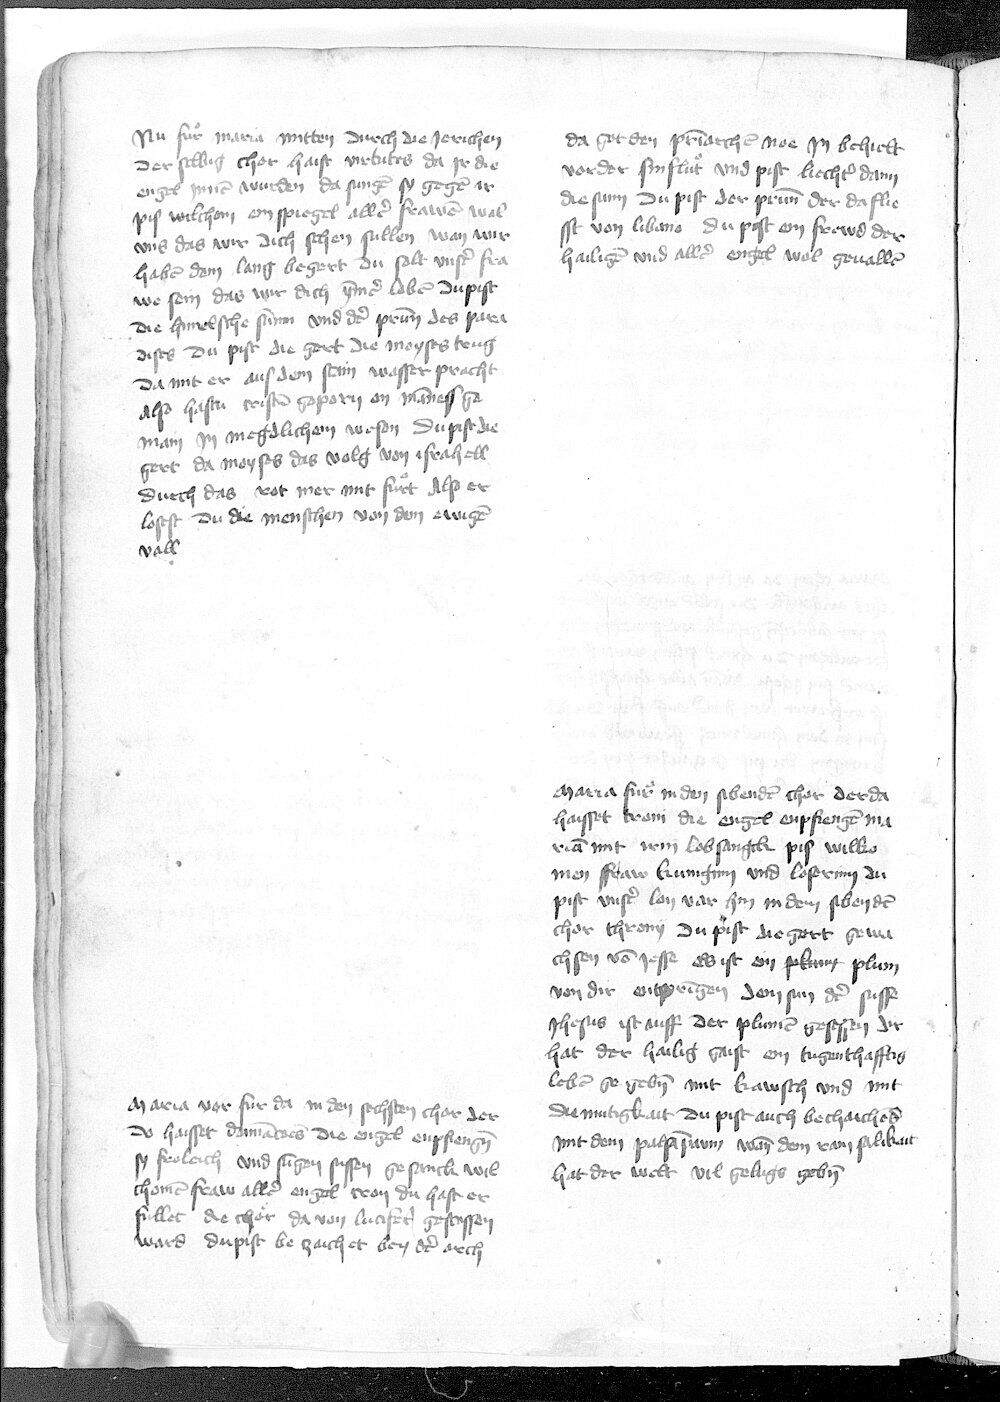 Nu fur maria mitten durch die Jerichen
der selbig chor haist virtutes da ir die
engel ynnē wurden da sungē sy gegē ir
pis wilchom ein spiegel allē frawē wol
uns das wir dich sehen sullen wan wir
habē dein lang begert Du solt unsē fra
we sein das wir dich ymē lobē Du pist
die himelsche sunn und dē prūn des para
dises Du pist die gert die moyses trug
Da mit er aus dem stain wasser pracht
Also hastu cristē geporn on mānes ge
main in megdlichem wesen Du pist die
gert da moyses das volg von israhell
durch das rot mer mit furt Also er
losest Du die menschen von dem ewigē
vall
Maria vor fur da in den sechsten chor der
do haisset domācoēs die engel enpfiengn̄
sy froleich und sūgen sussen gesanck wil
chomē fraw allē engel kron du hast er
fullet die chor da von lucifer gestossen
ward du pist bezaichet bey dē arch
da got den priārchē noe in behielt
vor der sinflut und pist liechtē dann
die sunn Du pist der prūn der da flie
sst von libano du pist ein frewd der
hailigē und allē engel wol gevallē
Maria fur in den sibendē chor der da
haisset troni die engel enpfiengē ma
riā mit irm lobsangck pis willko
men fraw kuniginn und loserinn du
pist unsē lon var hin in dem sibendē
chor throny Du pist die gert gewa
chsen vō Jesse es ist ein plum
von dir entsprīgen dein sun dē susse
Jhesus ist auff der plumē gesessen dir
hat der hailig gaist ein tugenthafftig
lebē gegebn̄ mit kawsch und mit
diemutigkait Du pist auch bechaichē
mit dem palsām wān dein rain salikait
hat der welt vil gelugs gebn̄